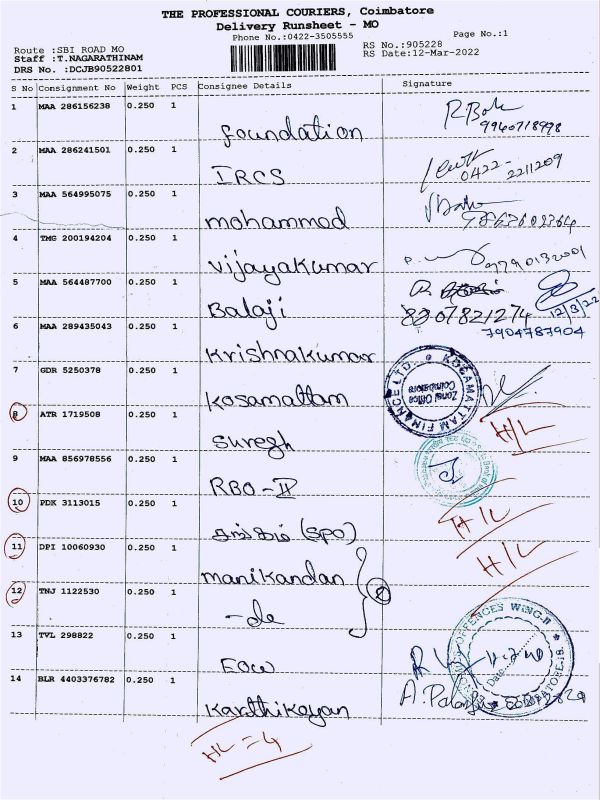 THE PROFESSIONAL COURIERS, Coimbatore
Delivery Runsheet - MO
Phone No.:0422-3505555
Page No.:1
Route :SBI ROAD MO
RS No.:905228
Staff :T.NAGARATHINAM
RS Date:12-Mar-2022
DRS No. :DCJB90522801
S No Consignment No Weight PCS Consignee Details Signature
1 MAA 286156238 0.250 1
foundation
9940718998
2 MAA 286241501 0.250 1
IRCS
0422-2211209
3 MAA 564995075 0.250 1
mohammod
4 TMG 200194204 0.250 1
vijayakumar
9790132001
5 MAA 564487700 0.250 1
Balaji
8207821274
12/3/22
7904787904
6 MAA 289435043 0.250 1
Krishnakumar
7 GDR 5250378 0.250 1
Kosamattam
KOSAMATTAM FINANCE LTD.
Zonal Office
Coimbatore
8 ATR 1719508 0.250 1
Suregh
H/L
9 MAA 856978556 0.250 1
RBO-II
10 PDK 3113015 0.250 1
சங்கம் (SPO)
H/L
11 DPI 10060930 0.250 1
manikandan
H/L
12 TNJ 1122530 0.250 1
-do
13 TVL 298822 0.250 1
EOW
OFFENCES WING-II
Date
COIMBATORE
14 BLR 4403376782 0.250 1
Karthikeyan
HL = 4